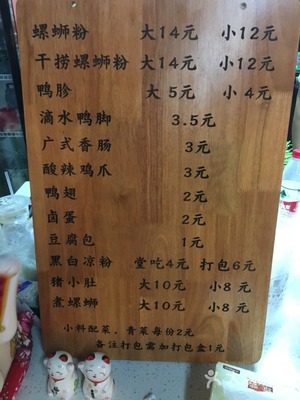 螺蛳粉 大14元 小12元
干捞螺蛳粉 大14元 小12元
鸭胗 大 5元 小 4元
滴水鸭脚 3.5元
广式香肠 3元
酸辣鸡爪 3元
鸭翅 2元
卤蛋 2元
豆腐包 1元
黑白凉粉 堂吃4元 打包6元
猪小肚 大10元 小8 元
煮螺蛳 大10元 小8 元
小料配菜、青菜每份2元
备注打包需加打包盒1元